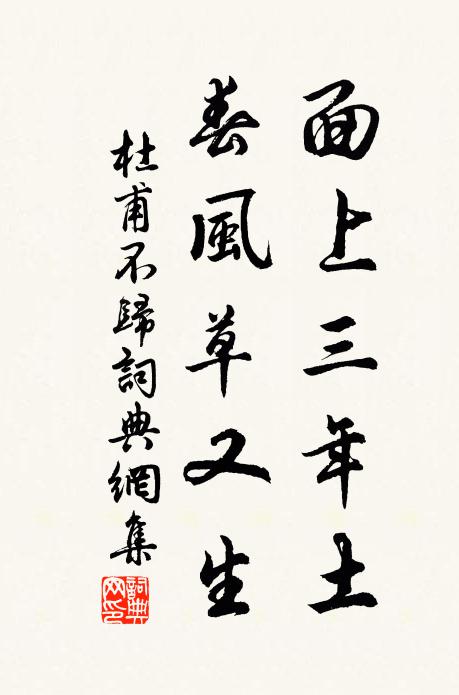 面上三年土
春風草又生
杜甫不歸詞典網集
詞典
网印